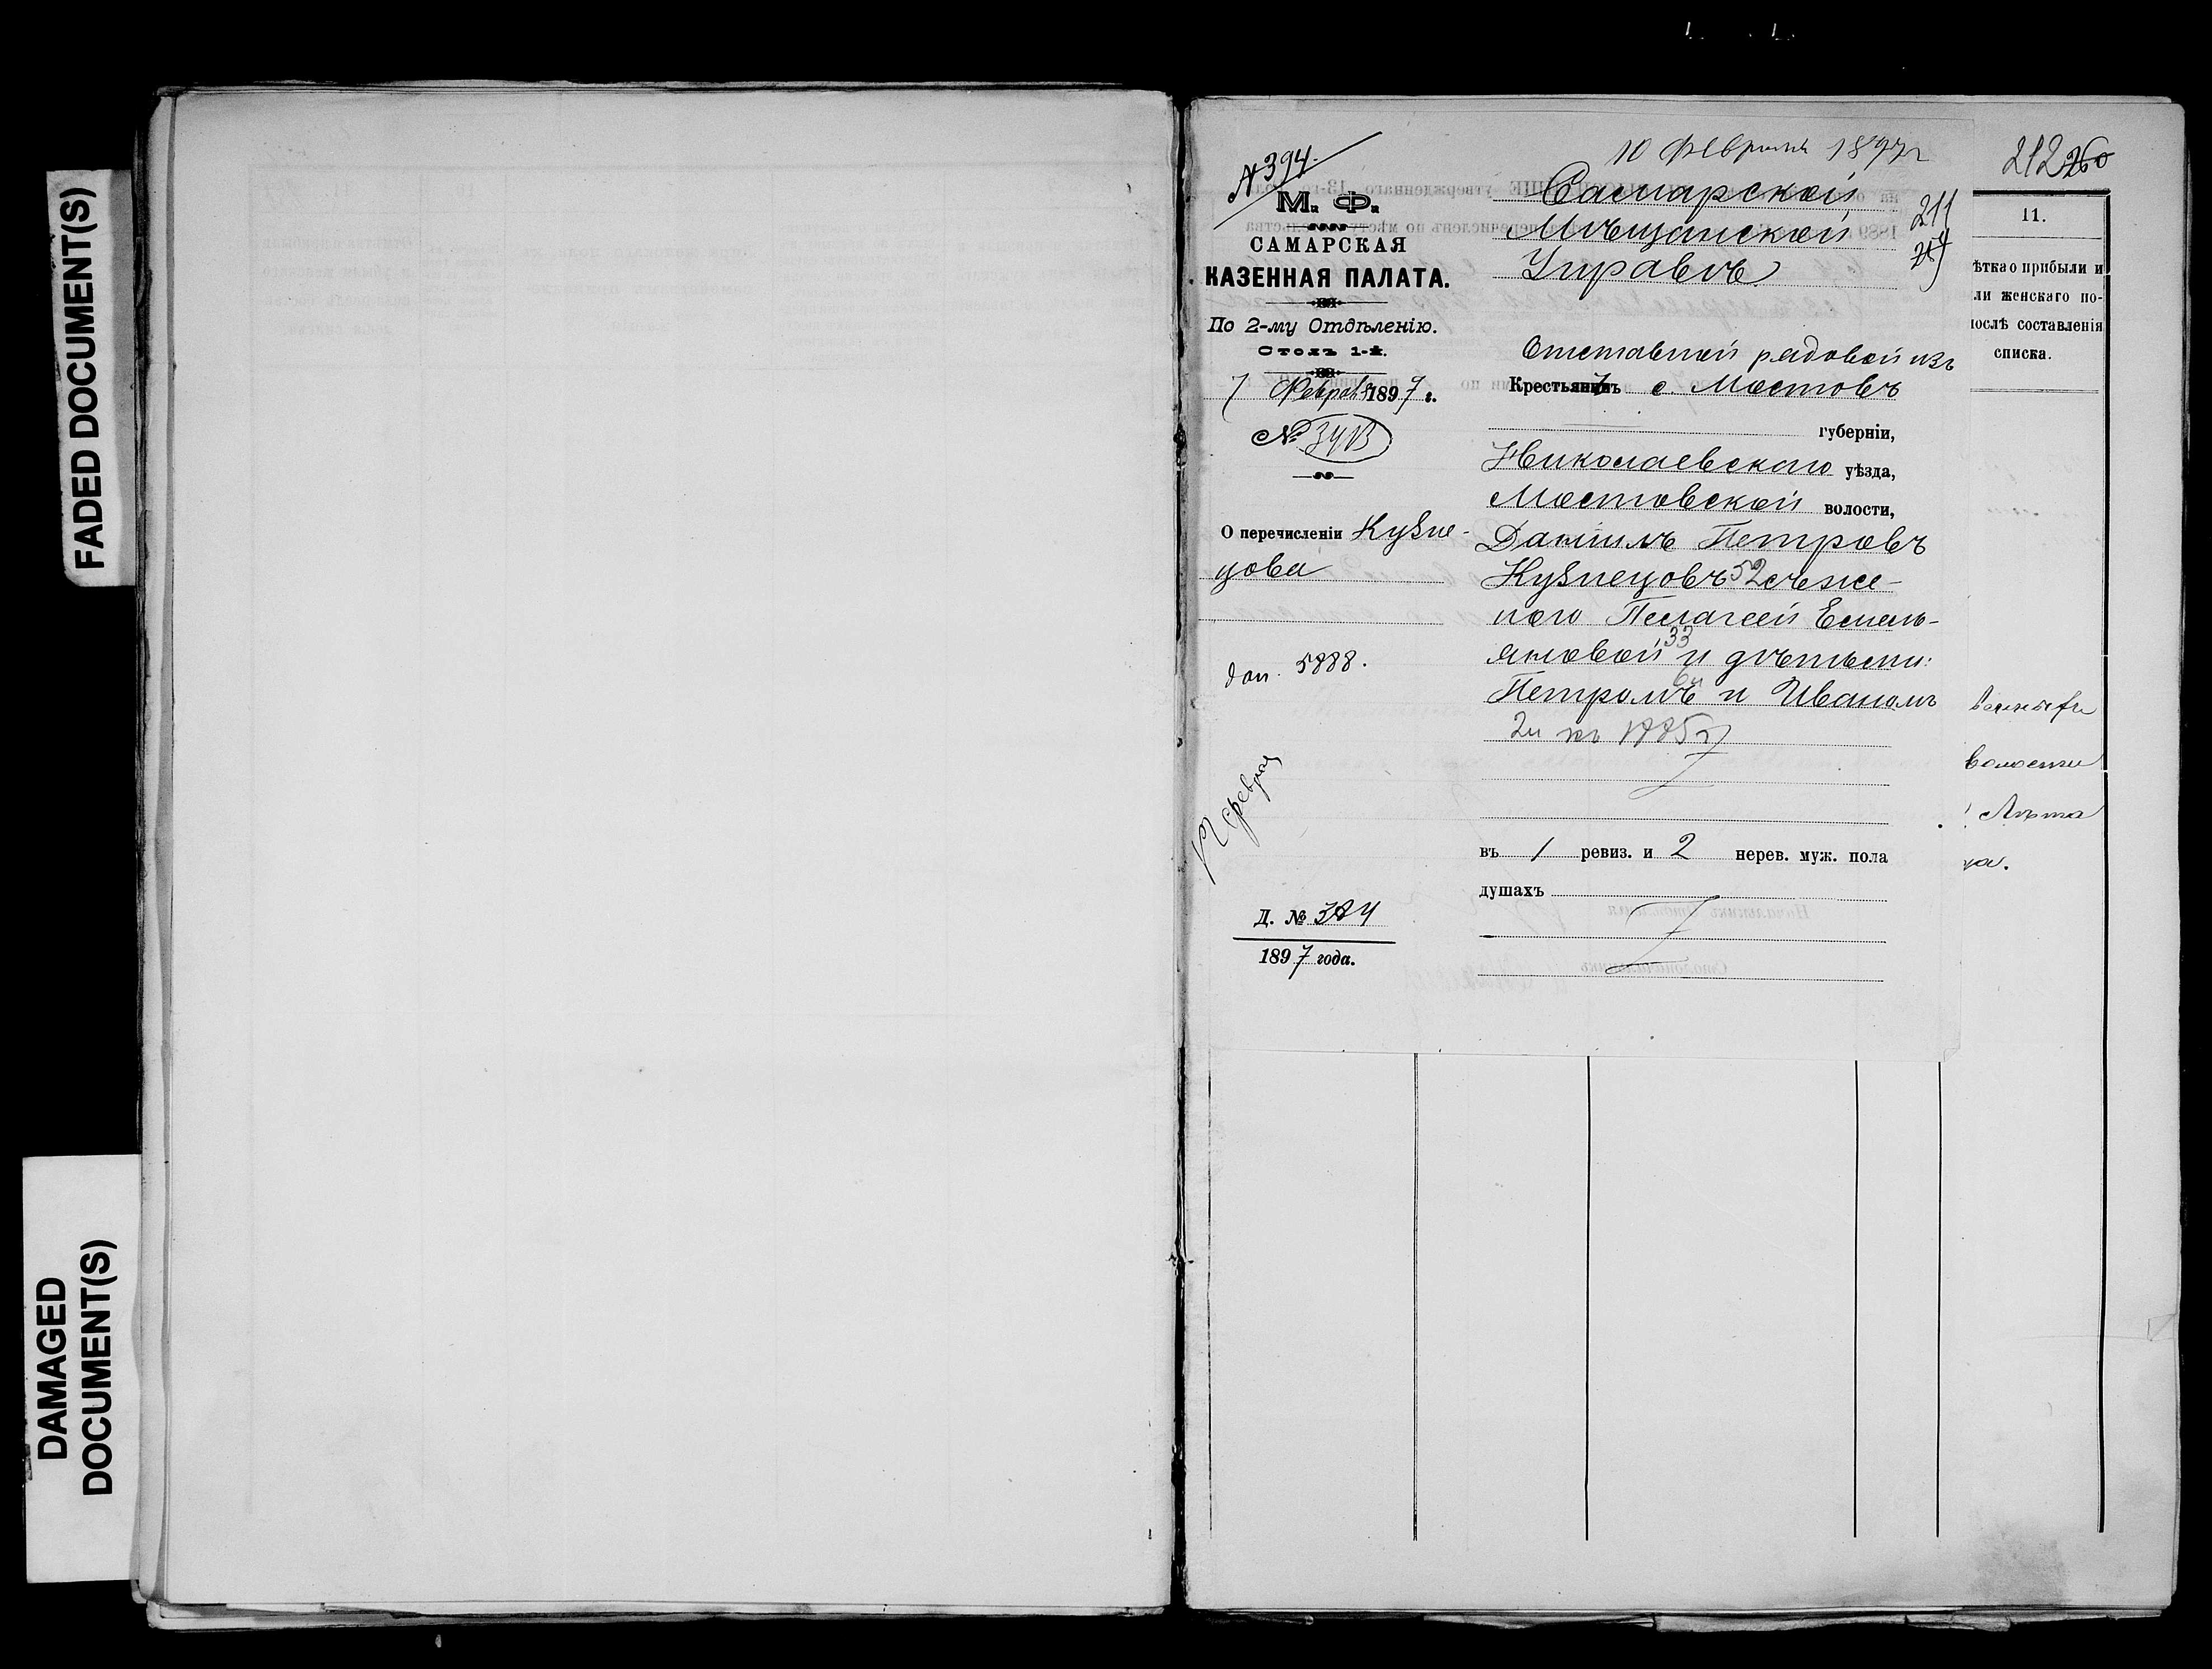 FADED DOCUMENT(S)
DAMAGED
DOCUMENT(S)
№ 394.
М. Ф.
САМАРСКАЯ
КАЗЕННАЯ ПАЛАТА.
По 2-му Отдѣленію.
Столъ 1-й.
7 Февраля 1897 г.
О перечисленіи Кузне-
цова
доп. 5888.
Д. № 384
1897 года.
10 Февраля 1897 г
Самарской
Мѣщанской
Управѣ
211
Отставной рядовой изъ
Крестьянъ с. Мостовъ
губерніи,
Николаевскаго уѣзда,
Мостовской волости,
Даніилъ Петровъ
Кузнецовъ 52 съ же-
ною Пелагеей Емель-
яновой 33 и дѣтьми:
Петромъ 6 и Иваномъ
2 1885 г
въ 1 ревиз. и 2 нерев. муж. пола
душахъ
212 260
11.
ѣтка о прибыли и
ли женскаго по-
послѣ составленія
списка.
волости
Лѣта